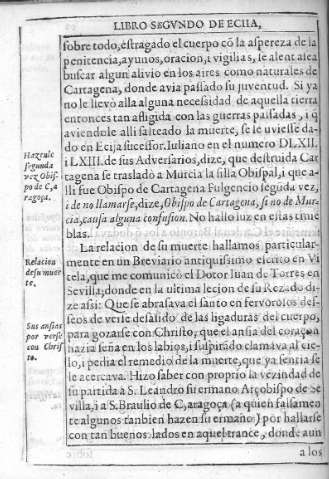 LIBRO SEGVNDO DE ECIIA,
sobre todo, estragado el cuerpo cō la aspereza de la
penitencia, ayunos, oracion, i vigilias, le alentasea
buscar algun alivio en los aires como naturales de
Cartagena, donde avia passado su juventud. Si ya
no le llevò alla alguna necessidad de aquella tierra
entonces tan afligida con las guerras passadas, i q
aviendole alli salteado la muerte, se le uviesse da-
do en Ecija sucessor. Iuliano en el numero DLXII.
i LXIII. de sus Adversarios, dize, que destruida Car
tagena se trasladò a Murcia la silla Obispal, i que a-
lli fue Obispo de Cartagena Fulgencio segunda vez,
i de no llamarse, dize, Obispo de Cartagena, si no de Mur-
cia, causa alguna confusion. No hallo luz en estas tinie
blas.
Hazenle
segunda
vez Obis-
po de C,a
ragoça.
La relacion de su muerte hallamos particular-
mente en un Breviario antiquissimo escrito en Vi
tela, que me comunicò el Dotor Iuan de Torres en
Sevilla; donde en la ultima lecion de su Rezado di-
ze assi: Que se abrasava el santo en fervorosos des-
seos de verse desasido de las ligaduras del cuerpo,
para gozarse con Christo, que el ansia del coraçon
hazia seña en los labios, i suspirādo clamava al cie-
lo, i pedia el remedio de la muerte, que ya sentia se
le acercava. Hizo saber con proprio la vezindad de
su partida a S. Leandro su ermano Arçobispo de Se
villa, i a S. Braulio de C,aragoça (a quien falsamen
te algunos tanbien hazen su ermano) por hallarse
con tan buenos lados en aquel trance, donde aun
Relacion
de su muer
te.
Sus ansias
por verse
con Chris
to.
a los